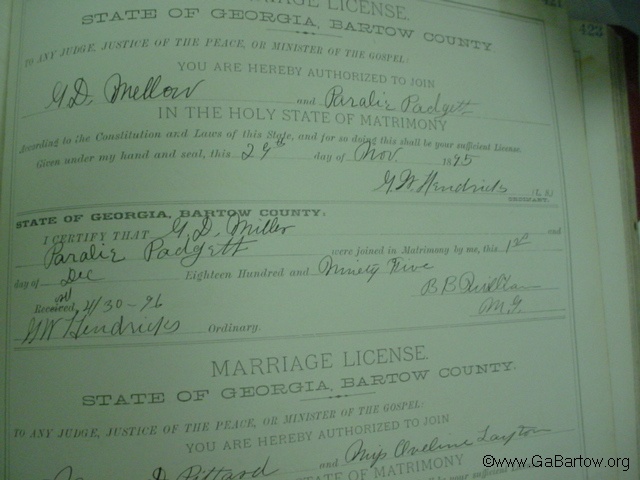 MARRIAGE LICENSE.
STATE OF GEORGIA, BARTOW COUNTY.
422
TO ANY JUDGE, JUSTICE OF THE PEACE, OR MINISTER OF THE GOSPEL:
YOU ARE HEREBY AUTHORIZED TO JOIN
G. D. Mellow and Paralie Padgett
IN THE HOLY STATE OF MATRIMONY
According to the Constitution and Laws of this State, and for so doing this shall be your sufficient License.
Given under my hand and seal, this 29th day of Nov 1895
G W Hendricks (L. S.)
ORDINARY.
STATE OF GEORGIA, BARTOW COUNTY:
I CERTIFY THAT G. D. Miller and
Paralie Padgett were joined in Matrimony by me, this 1st
day of Dec Eighteen Hundred and Ninety Five
B B Quillian
M. G.
Received 4/30-96
G W Hendricks Ordinary.
MARRIAGE LICENSE.
STATE OF GEORGIA, BARTOW COUNTY.
TO ANY JUDGE, JUSTICE OF THE PEACE, OR MINISTER OF THE GOSPEL:
YOU ARE HEREBY AUTHORIZED TO JOIN
D Pittard and Miss Oveline Layton
STATE OF MATRIMONY
©www.GaBartow.org